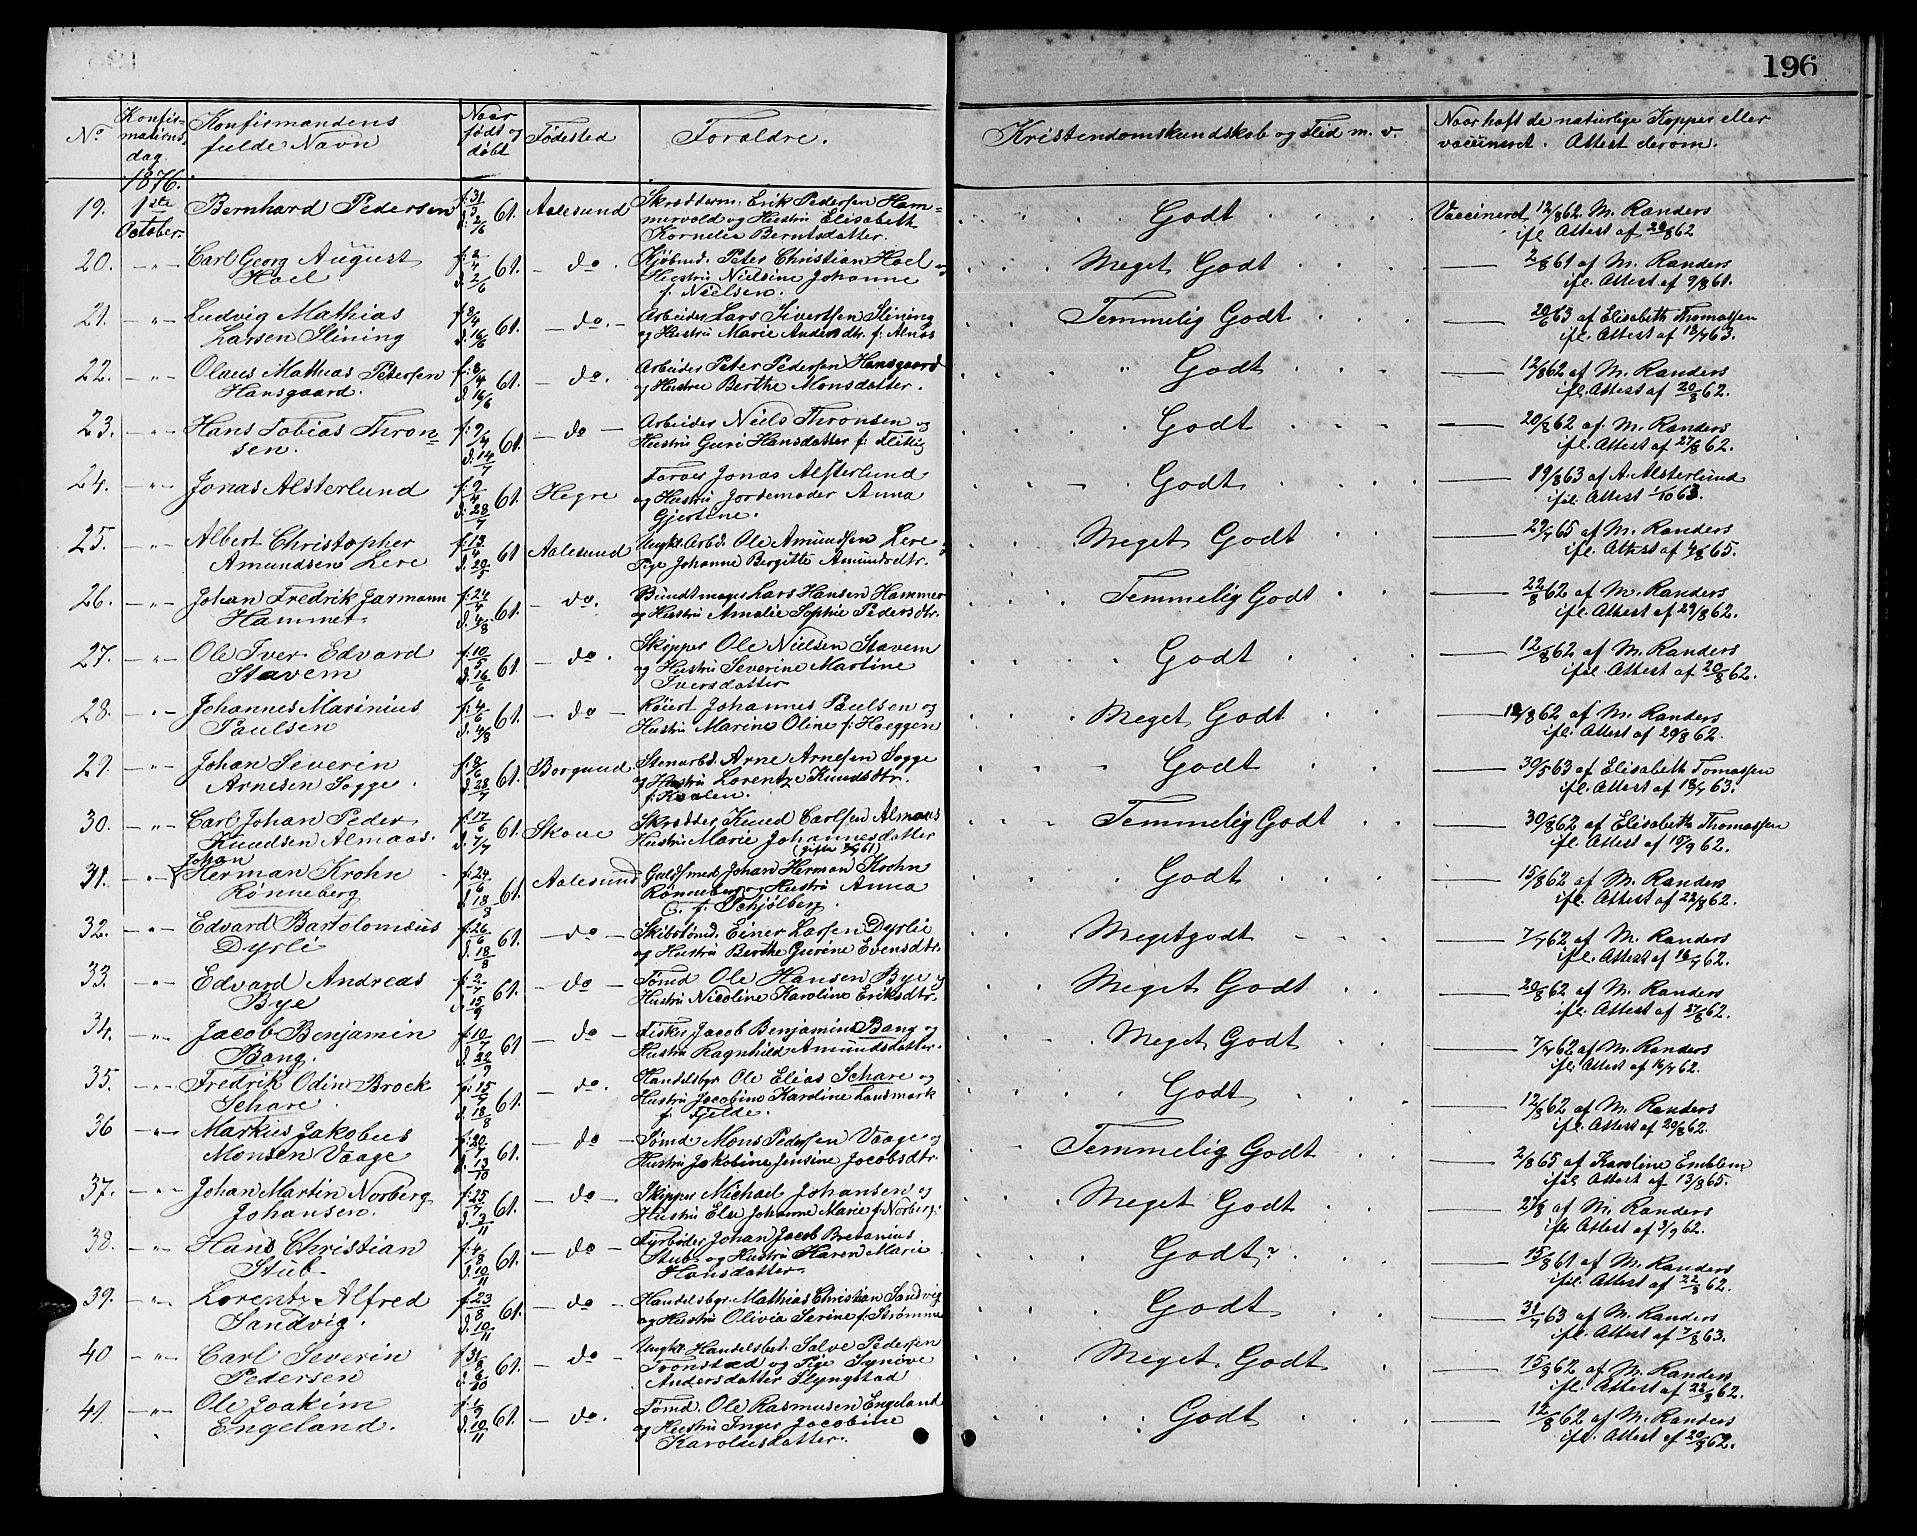 196
No Konfirmationsdag Konfirmandens fulde Navn Naar født og døbt Fødested Forældre. Kristendomskundskab og Flid m. v. Naar haft de naturlige Kopper eller vaccineret. Attest derom.
1876.
19. 1ste October. Bernhard Pedersen f. 31/3 d. 2/6 61. Aalesund Skræderm. Erik Pedersen Hammervold og Hustru Elisabeth Kornelia Berntsdatter. Godt Vaccineret 12/8 62. M. Randers ifl. Attest af 20/8 62
20. -"- Carl Georg August Hoel f. 2/4 d. 2/6 61. - do. Kjøbmd. Peter Christian Hoel og Hustru Nielsine Johanne f. Nielsen. Meget Godt 2/8 61 af M. Randers ifl. Attest af 9/8 61.
21. -"- Ludvig Mathias Larsen Slining f. 3/4 d. 16/6 61. - do. - Arbeider Lars Sivertsen Slining og Hustru Marie Andersdtr. f. Alnæs Temmelig Godt 20/6 63 af Elisabeth Thomassen ifl. Attest af 18/7 63.
22. -"- Olaus Mathias Petersen Hansgaard. f. 8/4 d. 16/6 61. - do. Arbeider Peter Pedersen Hansgaard og Hustru Berthe Monsdatter. " Godt 12/8 62 af M. Randers ifl. Attest af 20/8 62.
23. -"- Hans Tobias Thronsen. f. 9/4 d. 14/7 61. - do - Arbeider Niels Thronsen og Hustru Guri Hansdatter f. Flittig Godt 20/8 62 af M. Randers ifl. Attest af 27/8 62.
24. -"- Jonas Alsterlund f. 9/4 d. 28/7 61. Hegre Farver Jonas Alsterlund og Hustru Jordemoder Anna Gjertine. Godt 19/8 63 af A. Alsterlund iføl. Attest 1/10 63.
25. -"- Albert Christopher Amundsen Lere f. 13/4 d. 20/5 61 Aalesund Ungk. Arbd. Ole Amundsen Lere og Pige Johanne Bergitte Amundsdtr. Meget Godt 29/7 65 af M. Randers ifl. Attest af 4/8 65.
26. -"- Johan Fredrik Jarmann Hammer f. 24/4 d. 4/8 61. - do. Bundtmager Lars Hansen Hammer og Hustru Amalie Sophie Pedersdtr. Temmelig Godt 22/8 62 af M. Randers ifl. Attest af 29/8 62.
27. -"- Ole Iver Edvard Stavem f. 10/5 d. 16/6 61. - do. Skipper Ole Nielsen Stavem og Hustru Severine Martine Iversdatter Godt 12/8 62 af M. Randers iføl. Attest af 20/8 62.
28. -"- Johannes Marinius Paulsen f. 4/6 d. 4/8 61. - do Røiert Johannes Paulsen og Hustru Marine Oline f. Hoeggen Meget Godt 12/8 62 af M. Randers ifl. Attest af 20/8 62.
29. -"- Johan Severin Arnesen Sogge. f. 8/6 d. 28/7 61. Borgund Stenarbd. Arne Arnesen Sogge og Hustru Lorentze Knudsdtr. f. Kvalen. Godt 30/5 63 af Elisabeth Tomassen ifl. Attest af 18/7 63.
30. -"- Carl Johan Peder Knudsen Almaas. f. 17/6 d. 7/7 61. Skoue Skræder Knud Carlsen Almaas Hustru Marie Johannesdatter Temmelig Godt 30/8 62 af Elisabeth Thomassen ifl. Attest af 10/9 62.
31. -"- Johan Herman Krohn Rønneberg f. 24/6 d. 18/8 61. Aalesund Guldsmed Johan Herman Krohn Rønneberg og Hustru Anna C. f. Schjølberg. Godt 15/8 62 af M. Randers ifl. Attest af 22/8 62.
32. -"- Edvard Bartolomæus Dyrli f. 26/6 d. 18/8 61. - do - Skibstømd. Einer Larsen Dyrli og Hustru Berthe Gurine Evensdtr. Meget godt 7/7 62 af M. Randers ifl. Attest af 16/7 62.
33. -"- Edvard Andreas Bye f. 2/7 d. 15/9 61. - do - Tømd Ole Hansen Bye og Hustru Nicoline Karoline Eriksdtr. Meget Godt 20/8 62 af M. Randers ifl. Attest af 27/8 62.
34. -"- Jacob Benjamin Bang. f. 10/7 d. 22/9 61 - do - Fisker Jacob Benjamins Bang og Hustru Ragnhild Amundsdatter. Meget Godt 7/7 62 af M. Randers ifl. Attest af 16/7 62.
35. -"- Fredrik Odin Brock Schare. f. 15/7 d. 18/8 61. - do. Handelsbgr Ole Elias Schare og Hustru Jacobine Karoline Landmark f. Fjelde. Godt 12/8 62 af M. Randers ifl. Attest af 20/8 62.
36 -"- Markus Jakobus Monsen Vaage f. 20/7 d. 13/10 61. - do - Tømd Mons Pedersen Vaage og Hustru Jakobine Jensine Jacobsdtr. Temmelig Godt 2/8 65 af Karoline Emblem iføl. Attest af 13/8 65.
37. -"- Johan Martin Norberg Johansen. f. 25/7 d. 3/11 61. - do - Skipper Michael Johansen og Hustru Else Johanne Marie f. Norberg. Meget Godt 27/8 af M. Randers ifl. Attest af 3/9 62.
38. -"- Hans Christian Stub. f. 4/8 d. 10/11 61. - do - Fyrbøder Johan Jacob Bretanius Stub og Hustru Karen Marie Hansdatter. Godt? 15/8 61 af M. Randers ifl. Attest af 22/8 62.
39. -"- Lorentz Alfred Sandvig. f. 23/8 d. 10/11 61. - do - Handelsbgr. Mathias Christian Sandvig og Hustru Olivia Serine f. Strømme Godt 31/7 63 af M. Randers ifl. Attest af 7/8 63.
40 -"- Carl Severin Pedersen f. 31/8 d. 6/10 61. - do - Ungk. Handelsbet. Salve Pedersen Tronstad og Pige Synøve Andersdatter Slyngstad Meget. Godt 15/8 62 af M. Randers ifl. Attest af 22/8 62.
41 -"- Ole Joakim Engeland. d. 10/11 61. - do. Tømd. Ole Rasmusen Engeland og Hustru Inger Jacobine Karolusdatter. Godt 12/8 62 af M. Randers ifl. Attest af 20/8 62.